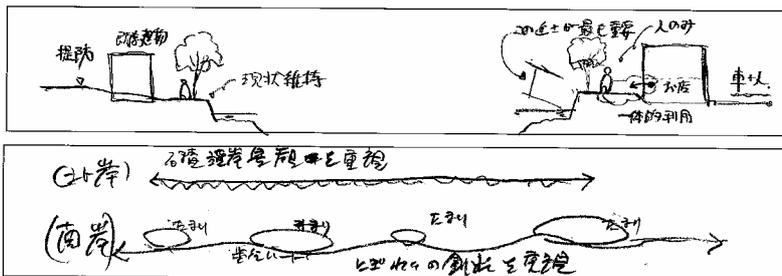 堤防
既存建物
現状維持
この近土が最も重要
人のみ
お店
車+人
一体的利用
(北岸)
石積護岸景観を重視
(南岸)
たまり
たまり
たまり
たまり
にぎわいの創出を重視